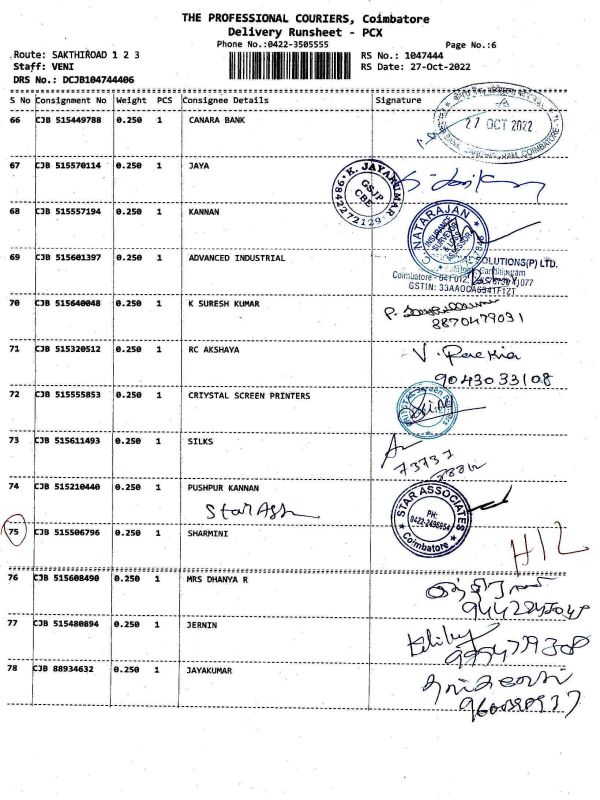 THE PROFESSIONAL COURIERS, Coimbatore
Delivery Runsheet - PCX
Phone No.:0422-3505555
Page No.:6
Route: SAKTHIROAD 1 2 3
RS No.: 1047444
Staff: VENI
RS Date: 27-Oct-2022
DRS No.: DCJB104744406
S No Consignment No Weight PCS Consignee Details Signature
66 CJB 515449788 0.250 1 CANARA BANK
27 OCT 2022
67 CJB 515570114 0.250 1 JAYA
K. JAYAKUMAR
GSJP
CBE
9842272129
68 CJB 515557194 0.250 1 KANNAN
C. NATARAJAN
INSURANCE
SURVEYOR
& LOSS
69 CJB 515601397 0.250 1 ADVANCED INDUSTRIAL
SOLUTIONS(P) LTD.
Coimbatore
70 CJB 515640048 0.250 1 K SURESH KUMAR
8870479031
71 CJB 515320512 0.250 1 RC AKSHAYA
9043033108
72 CJB 515555853 0.250 1 CRIYSTAL SCREEN PRINTERS
73 CJB 515611493 0.250 1 SILKS
73737
74 CJB 515210440 0.250 1 PUSHPUR KANNAN
STAR ASSOCIATES
PH:
Coimbatore
75 CJB 515506796 0.250 1 SHARMINI
H12
76 CJB 515608490 0.250 1 MRS DHANYA R
77 CJB 515480894 0.250 1 JERNIN
78 CJB 88934632 0.250 1 JAYAKUMAR